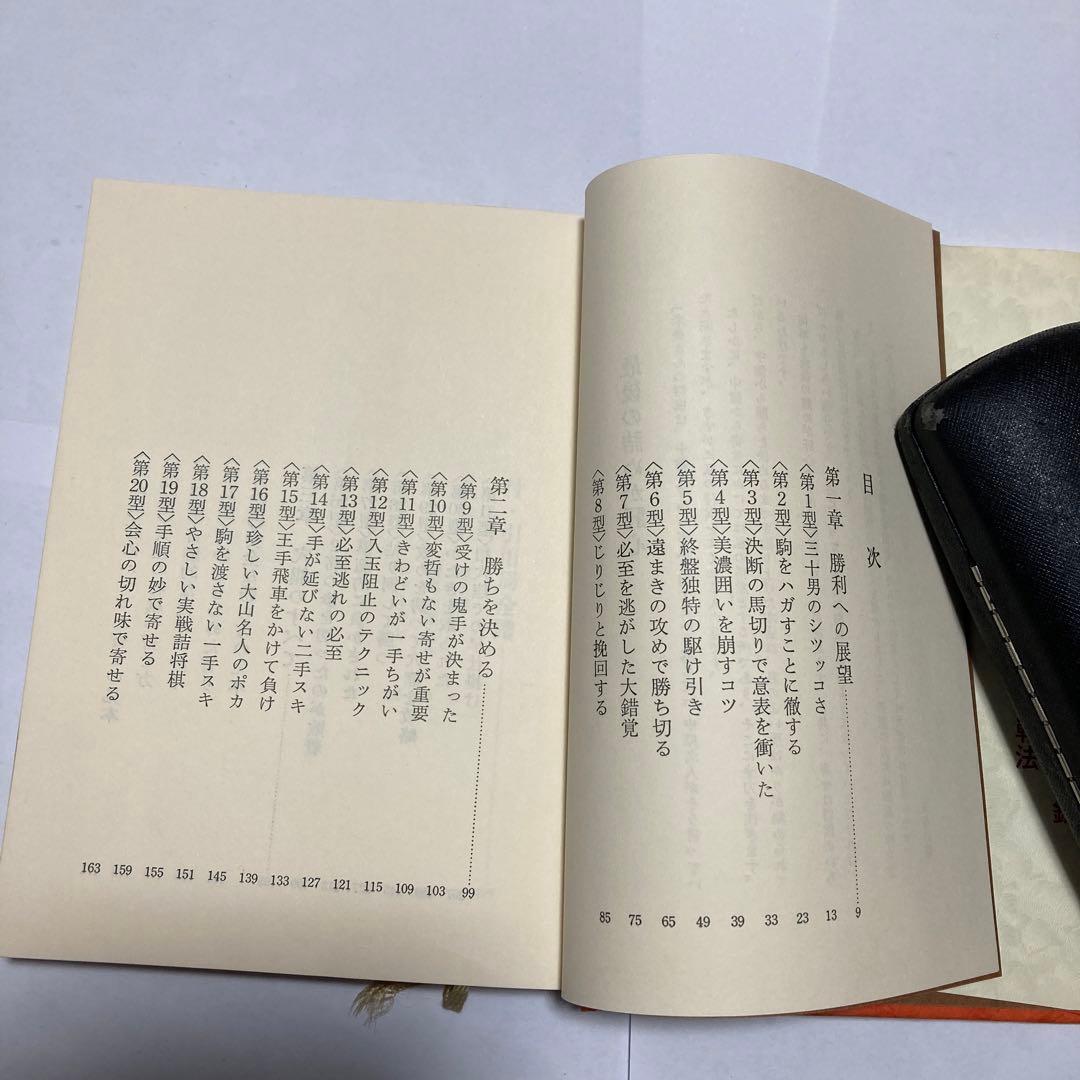 目次
第一章　勝利への展望……………………9
〈第1型〉三十男のシツッコさ　13
〈第2型〉駒をハガすことに徹する　23
〈第3型〉決断の馬切りで意表を衝いた　33
〈第4型〉美濃囲いを崩すコツ　39
〈第5型〉終盤独特の駆け引き　49
〈第6型〉遠まきの攻めで勝ち切る　65
〈第7型〉必至を逃がした大錯覚　75
〈第8型〉じりじりと挽回する　85
第二章　勝ちを決める……………………99
〈第9型〉受けの鬼手が決まった　103
〈第10型〉変哲もない寄せが重要　109
〈第11型〉きわどいが一手ちがい　115
〈第12型〉入玉阻止のテクニック　121
〈第13型〉必至逃れの必至　127
〈第14型〉手が延びない二手スキ　133
〈第15型〉王手飛車をかけて負け　139
〈第16型〉珍しい大山名人のポカ　145
〈第17型〉駒を渡さない一手スキ　151
〈第18型〉やさしい実戦詰将棋　155
〈第19型〉手順の妙で寄せる　159
〈第20型〉会心の切れ味で寄せる　163
法